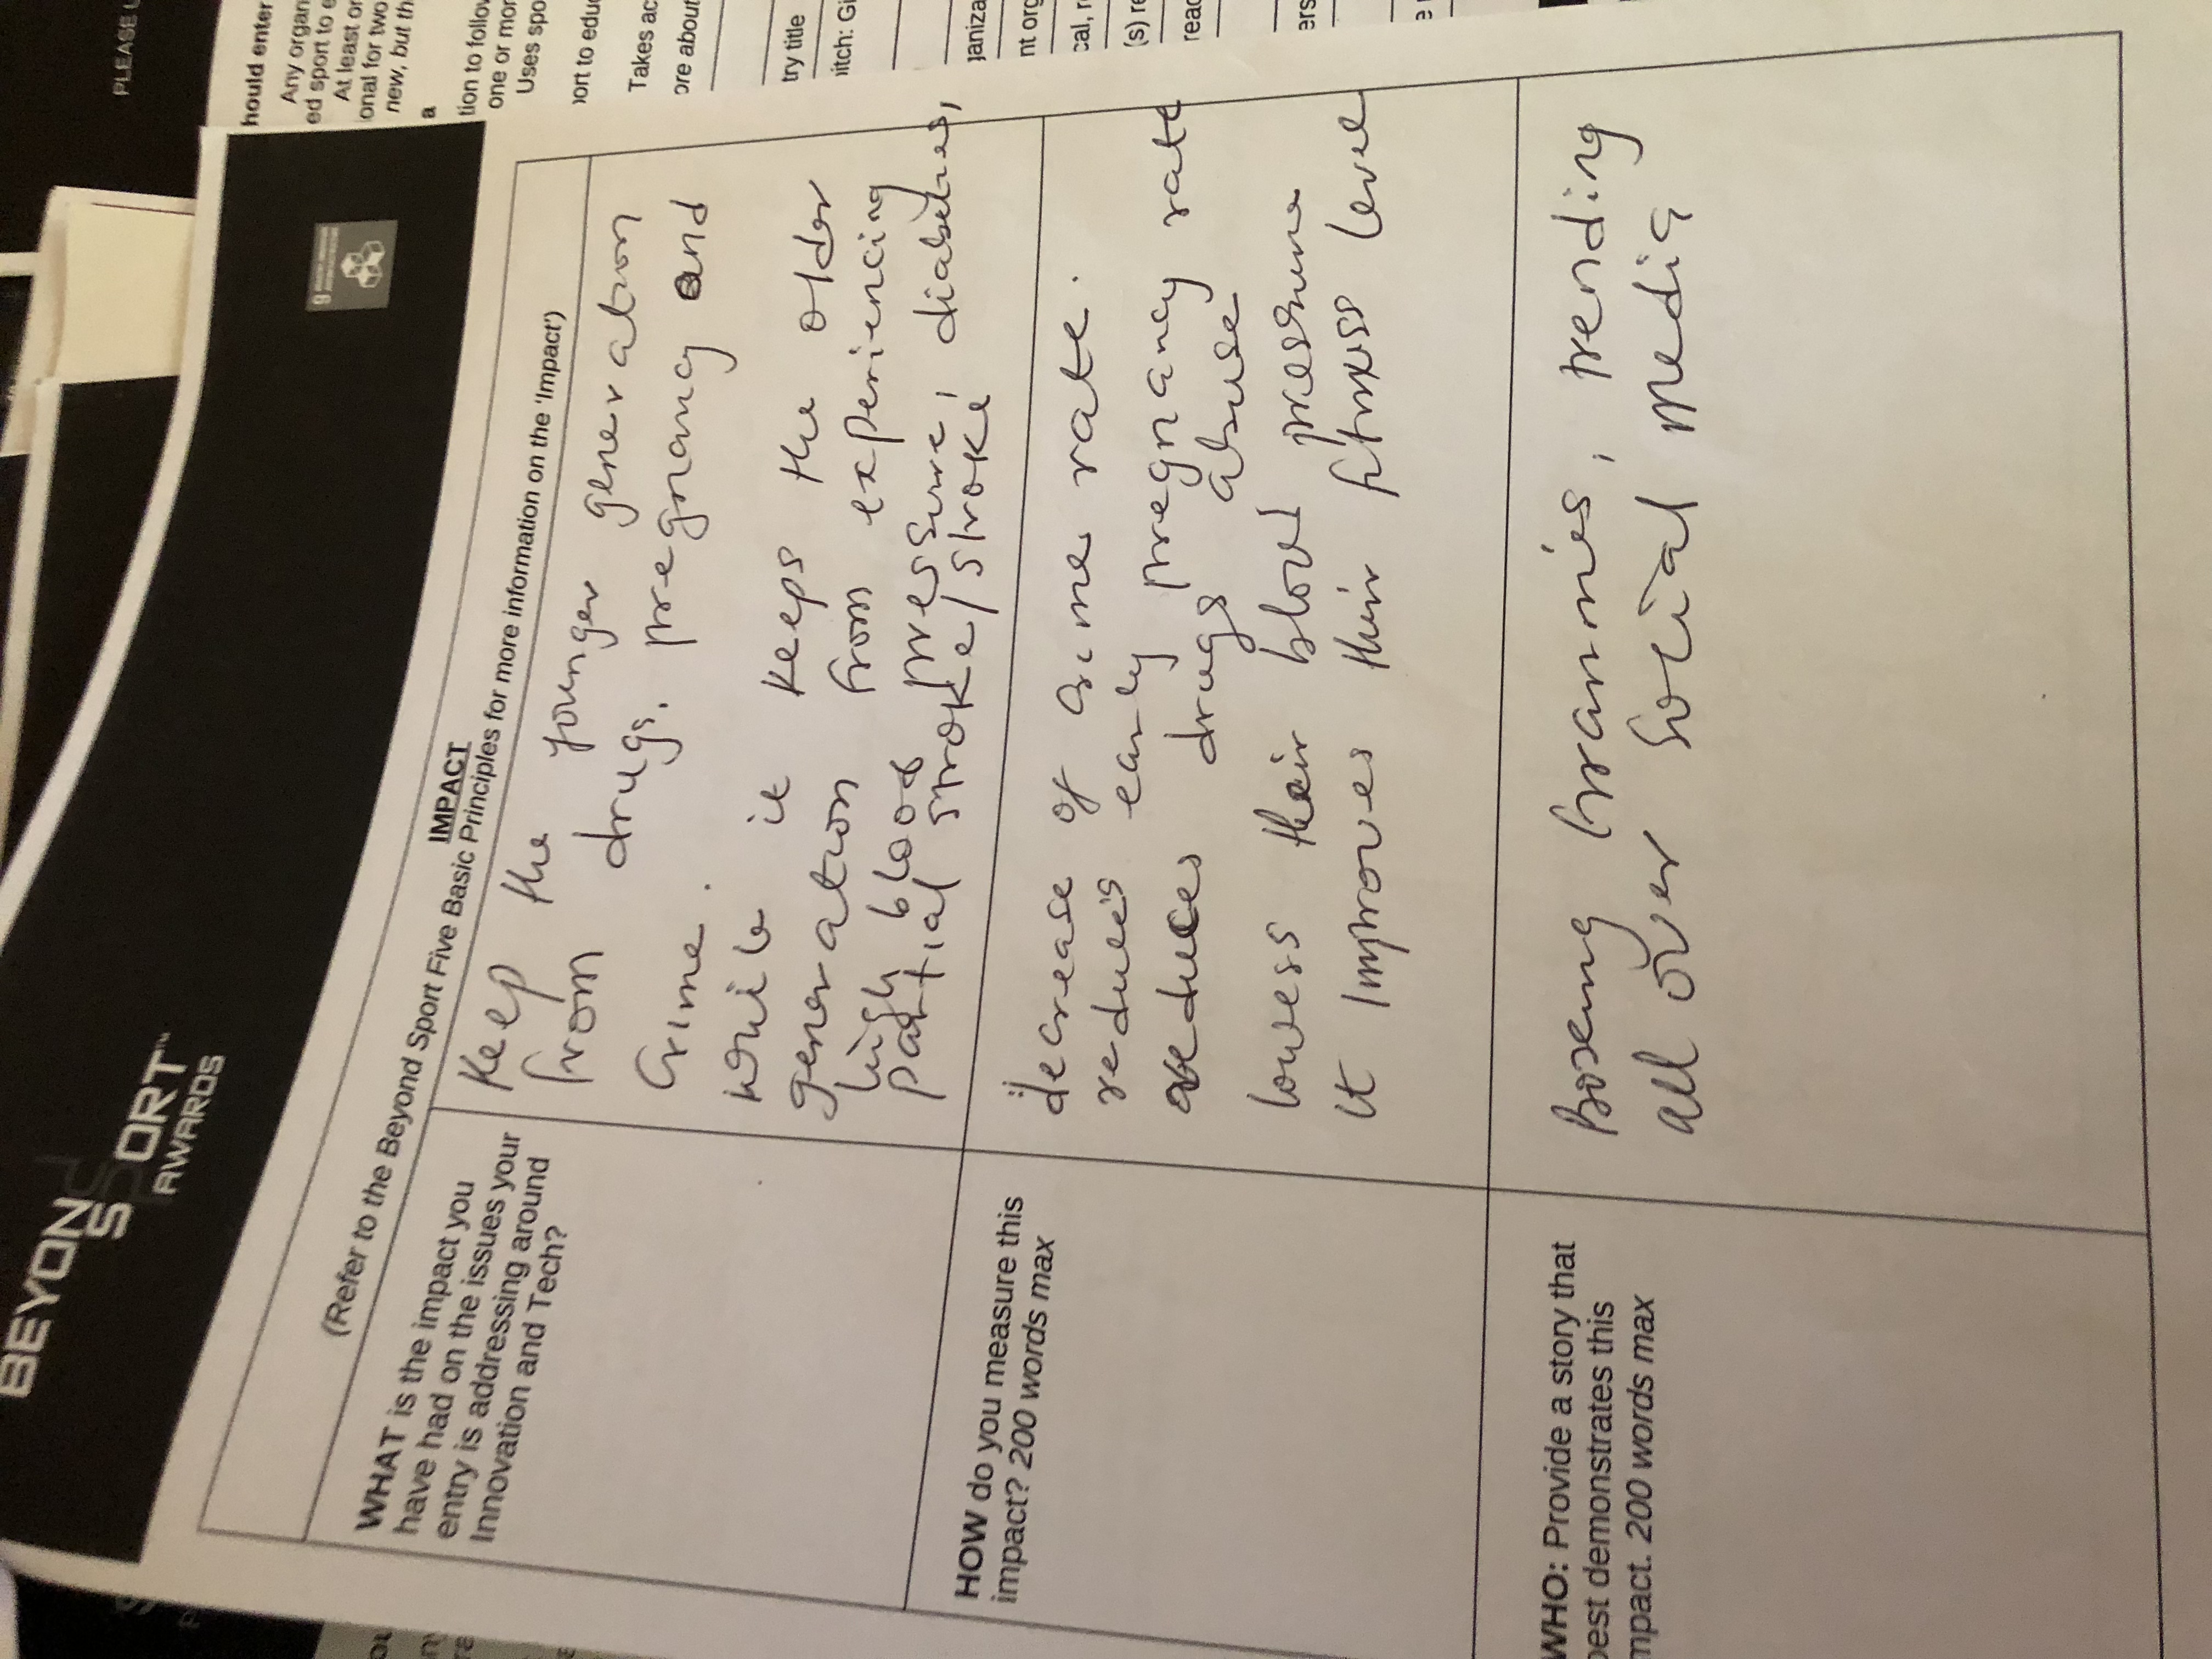 BEYOND
SPORT™
AWARDS
PLEASE
hould enter
Any organ
ed sport to e
At least or
onal for two
new, but th
a
tion to follow
one or mor
Uses spo
ort to educ
Takes ac
ore about
try title
itch: Gi
ganiza
nt org
cal, r
(s) re
read
ers
IMPACT
(Refer to the Beyond Sport Five Basic Principles for more information on the 'Impact')
WHAT is the impact you
have had on the issues your
entry is addressing around
Innovation and Tech?
Keep the younger generation
from drugs, pregnancy and
Crime.
While it keeps the older
generation from experiencing
high blood pressure, diabetes,
partial stroke/stroke
HOW do you measure this
impact? 200 words max
decrease of crime rate.
reduces early pregnancy rate
reduces drugs abuse
lowess their blood pressure
It improves their fitness level
WHO: Provide a story that
best demonstrates this
mpact. 200 words max
Boxing Grannies, trending
all over social media